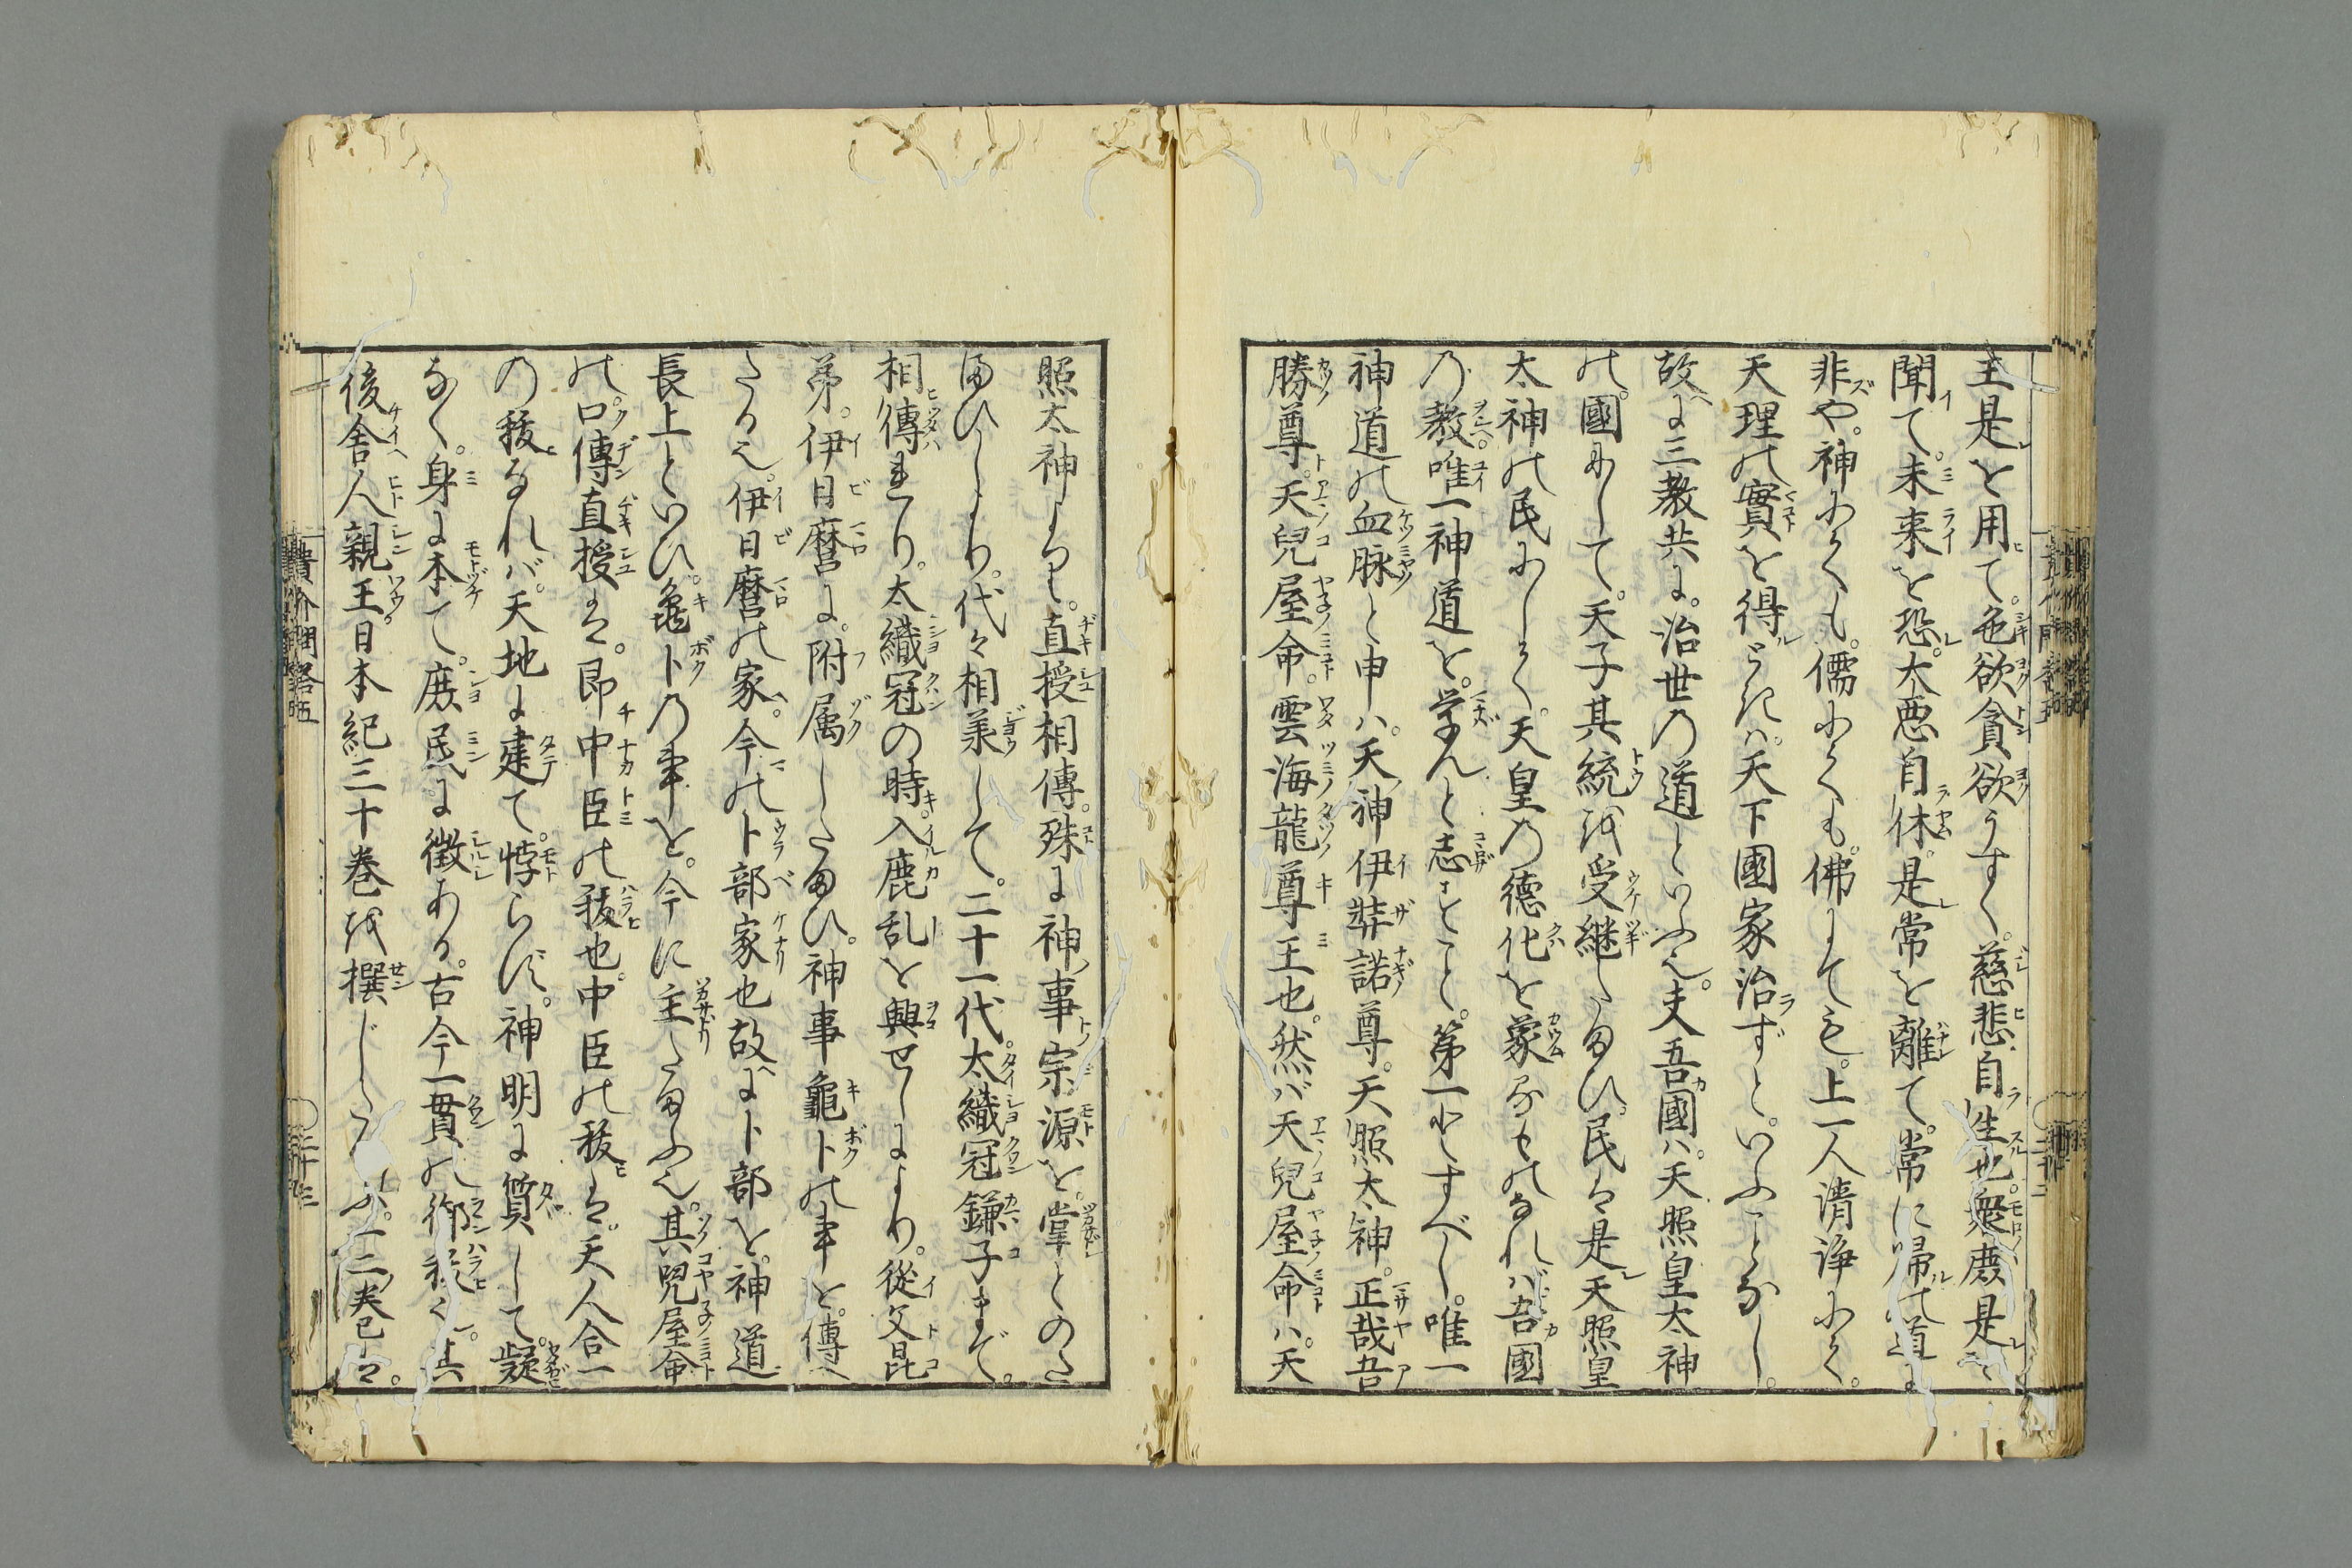 主是を用て。色欲貪欲うすく。慈悲自生也。衆庶是を
聞て。未来を恐。大悪自休。是常を離て。常に帰の道に
非や。神おくも。儒おくも。佛にても。上一人清浄おく。
天理の實を得ときハ。天下國家治ずと。いふことなし。
故に三教共に。治世の道といふ也。夫吾國ハ。天照皇太神
の。國にして。天子其統を受継たまひ。民は是天照皇
太神の民にしく。天皇の德化を蒙るものなれバ。吾國
の教。唯一神道を。学んと志すこと。第一とすべし。唯一
神道の血脉と申ハ。天神伊弉諾尊。天照太神。正哉吾
勝尊。天兒屋命。雲海龍尊王也。然バ天兒屋命ハ。天
照太神より。直授相傳。殊に神事宗源を。掌とのた
まひしより。代々相羕して。二十一代。太織冠鎌子まで。
相傳まり。太織冠の時。入鹿乱を興せしにより。従父昆
弟。伊日麿に。附属したまひ。神事龜卜の事を。傳へ
たる也。伊日麿の家。今の卜部家也故に卜部を。神道
長上といひ。龜卜の事を。今に主たまふ也。其兒屋命
の。口傳直授は。即中臣の秡也。中臣の秡は。天人合一
の秡なれバ。天地に建て。悖らず。神明に質して。疑
なく。身に本て。庶民に徴ある。古今一貫の御秡也。其
後舎人親王。日本紀三十巻を撰じたまふ。一二巻は。
貴介問答五
二十三